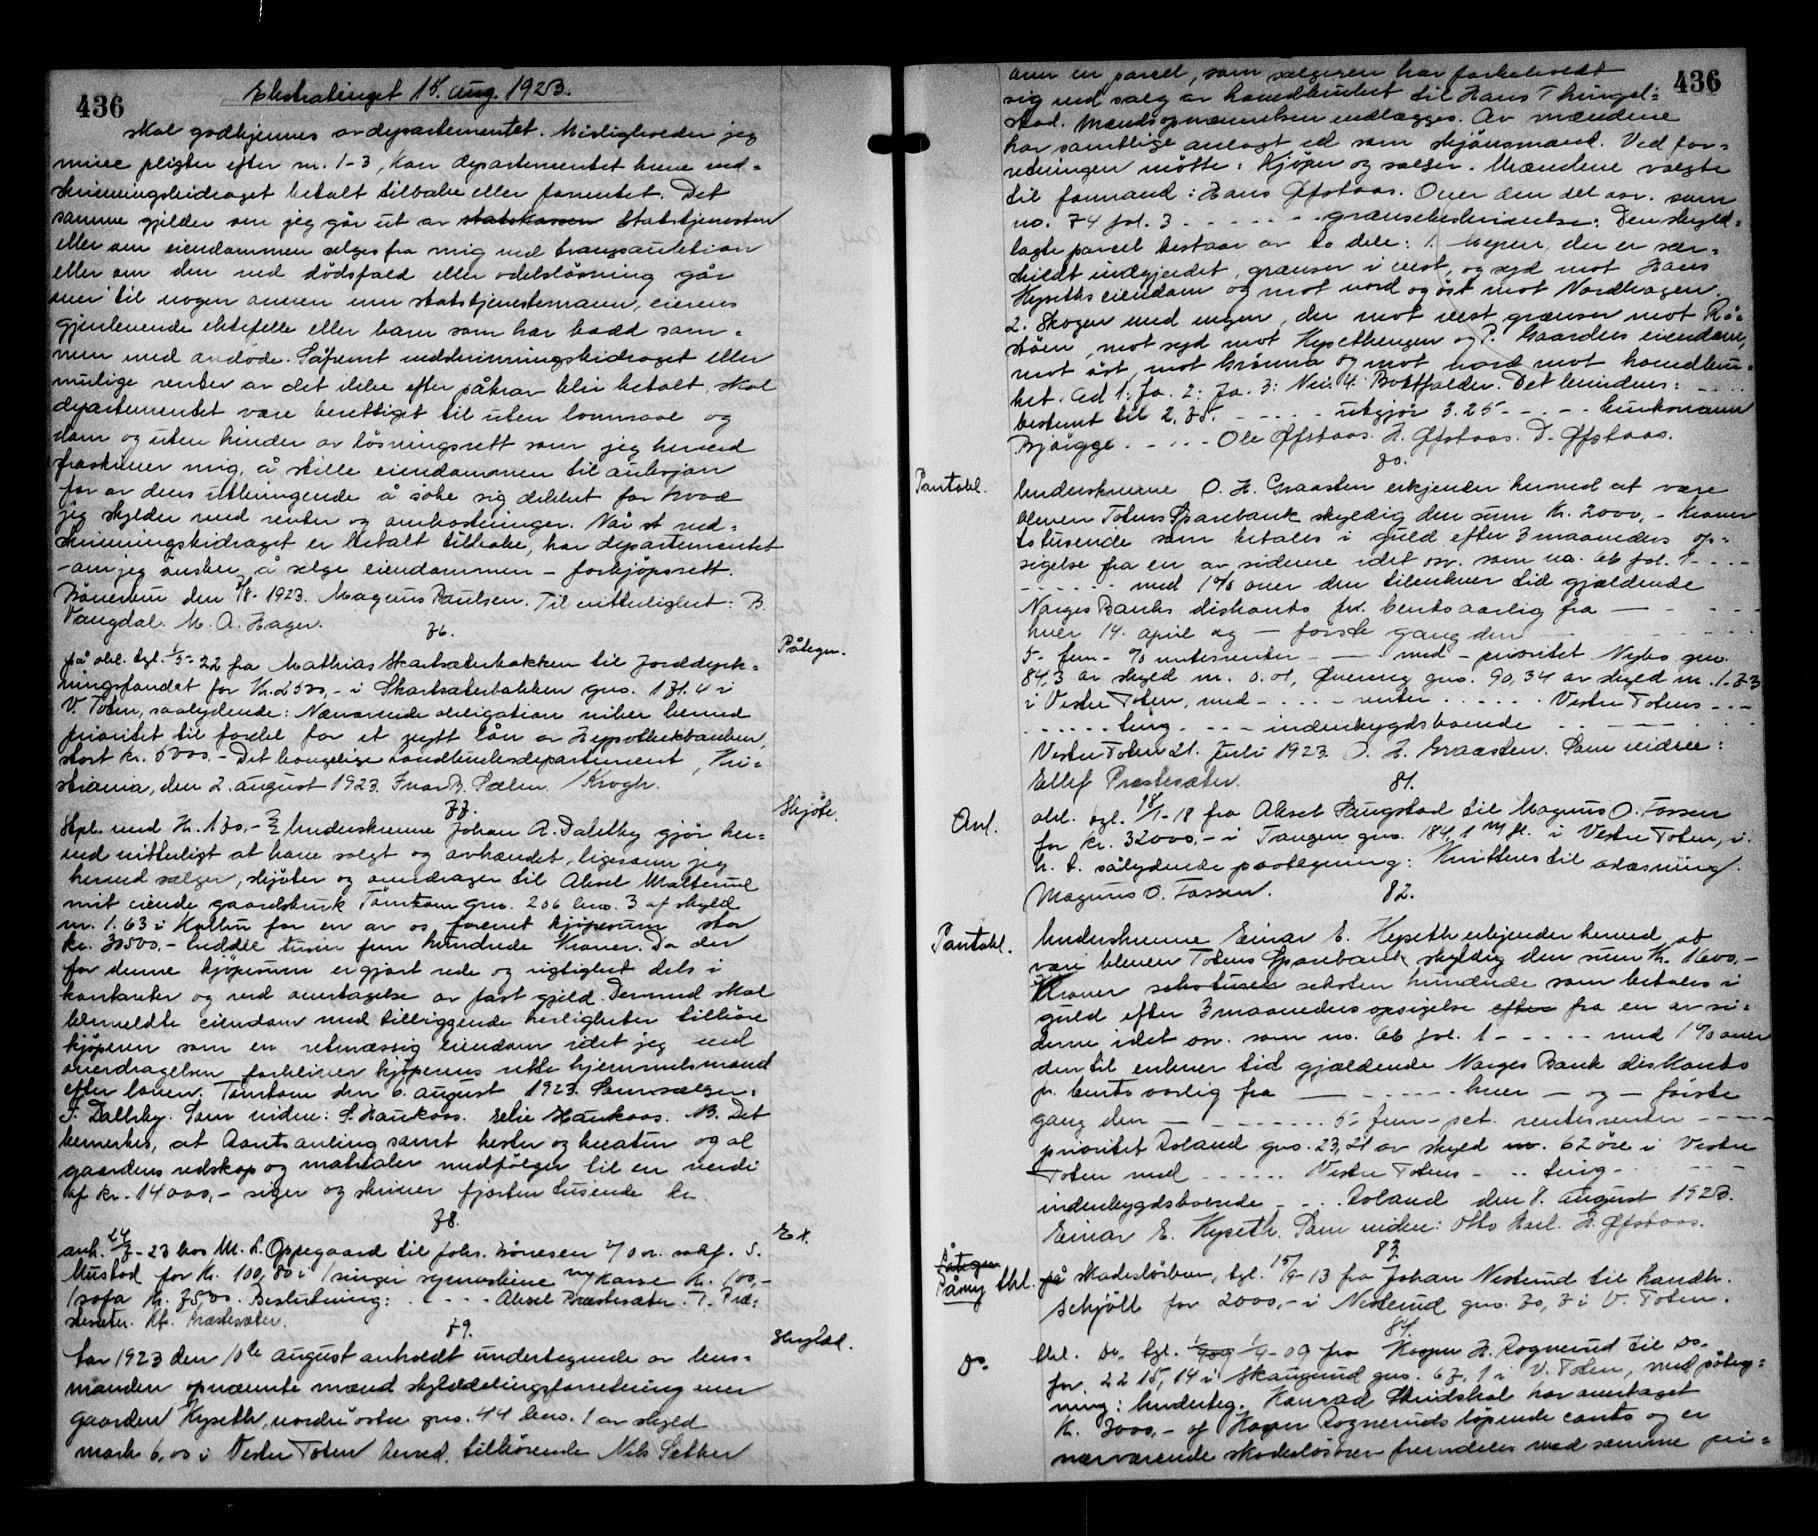 436
Ekstratinget 15. aug. 1923.
skal godkjennes av departementet. Misligholder jeg
mine pligter efter nr. 1-3, kan departementet kreve ned-
skrivningsbidraget betalt tilbake eller forrentet. Det
samme gjelder om jeg går ut av statskassen statstjenesten
eller om eiendommen selges fra mig ved tvangsauktion
eller om den ved dödsfald eller odelslösning går
over til nogen annen enn statstjenestemann, eierens
gjenlevende ektefelle eller barn som har bodd sam-
men med avdöde. Såfremt nedskrivningsbidraget eller
mulige renter av det ikke efter påkrav blir betalt, skal
departementet være berettiget til uten lovmaal og
dom og uten hinder av lösningsrett som jeg herved
fraskriver mig, å stille eiendommen til auksjon
for av dens utbringende å söke sig dekket for hvad
jeg skylder med renter og omkostninger. Når st ned-
skrivningsbidraget er betalt tilbake, har departementet
- om jeg önsker å selge eiendommen - forkjöpsrett.
Bönerbru den 9/8. 1923. Magnus Paulsen. Til vitterlighet: B.
Vangdal. M. A. Hager.
76.
Påtegn.
på obl. tgl. 1/5-22 fra Mathias Skartsæterbakken til Jorddyrk-
ningsfondet for Kr. 2500,- i Skartsæterbakken gns. 171.4 i
V. Toten, saalydende: Nærværende obligation viker herved
prioritet til fordel for et nytt lån av Hypothekbanken,
stort kr. 5000.- Det kongelige Landbruksdepartement, Kri-
stiania, den 2. august 1923. Ivar B. Sælen. / Krogh.
77.
Skjöte.
Stpl. med Kr. 170,- Underskrevne Johan A. Dahlby gjör her-
ved vitterligt at have solgt og avhændet, ligesom jeg
herved sælger, skjöter og overdrager til Aksel Malterud
mit eiende gaardsbruk Tömten gns. 206 bno. 3 af skyld
m. 1.63 i Kolbu for en av os forenet kjöpesum stor
kr. 30500,- tredve tusin fem hundrede Kroner. Da der
for denne kjöpesum er gjort rede og rigtighet dels i
kontanter og ved overtagelse av fast gjeld. Dermed skal
bemeldte eiendom med tilliggende herligheter tilhöre
kjöperen som en retmæssig eiendom idet jeg ved
overdragelsen forbliver kjöperens rette hjemmelsmand
efter loven. Tömten den 6. august 1923. Som sælger:
J. Dalhby. Som vidne: S. Haukaas. Helie Haukaas. N.B. Det
bemerkes, at Aarets avling samt hester og kreatur og al
gaardens redskap og materialer medfölger til en verdi
af kr. 14000,- siger og skriver fjorten tusende kr.
78.
Ex.
anh. 24/7-23 hos M. A. Oppegaard til Johs. Bönesen
Mustad for Kr. 100,80 i 1 singer symaskine m/kasse Kr. 100,-
1 sofa Kr. 75,00. Beslutning: . - - - Aksel Præstesæter. T. Præ-
stesæter. Kf. Præstesæter.
79.
Skyldd.
Aar 1923 den 10de august avholdt undertegnede av lens-
manden opnævnte mænd skylddelingsforretning over
gaarden Hyseth, nordre östre gns. 44 bno. 1 av skyld
mark 6,00 i Vestre Toten herred, tilhörende Nils Sether
436
over en parcel, som sælgeren har forbeholdt
sig ved salg av hovedbruket til Hans Thingel-
stad. Mandsopnævnelsen vedlægges. Av mændene
har samtlige avlagt ed som skjönsmænd. Ved for-
retningen mötte: Kjöper og sælger. Mændene valgte
til formand: Hans Öfstaas. Over den del osv. som
no. 74 fol. 3 - - - - - grænsebeskrivelse: Den skyld-
lagte parcel bestaar av to dele: 1. Myren, der er sær-
skildt indgjerdet, grænser i vest, og syd mot Hans
Hyseths eiendom og mot nord og öst mot Nordhagen.
2. Skogen med engen, der mot vest grænser mot Rö-
stöen, mot syd mot Hysethengen og P. Gaarders eiendom,
mot öst, mot Grönna og mot nord mot hovedbru-
ket. Ad 1: Ja. 2: Ja. 3: Nei. 4: Bortfalder. Det bruks: - - - -
bestemt til 2,75. - - - - - utgjör 3.25 - - - - bruksnavn
Bjöigge. - - - - Ole Öfstaas. H. Öfstaas. D. Öfstaas.
80.
Pantobl.
Underskrevne O. H. Graasten erkjender herved at være
bleven Totens Sparebank skyldig den sum Kr. 2000,- Kroner
totusende som betales i guld efter 3 maaneders op-
sigelse fra en av siderne idet osv. som no. 66 fol. 1 - - - -
- - - - - med 1% over den tilenhver tid gjældende
Norges Banks diskonto pr. cento aarlig fra - - - -
hver 14. april og - förste gang den - - - -
5- fem - % rentesrenter - - - med - prioritet Nybo gns.
84,3 av skyld m. 0.01, Övereng gns. 90,34 av skyld m. 1.73
i Vestre Toten, med - - - - renter . . . . . Vestre Totens - - -
. . . . . . ting - - - - indenbygdsboende - - - -
Vestre Toten 21. Juli 1923. O. H. Graasten. Som vidne:
Ellef Præstesæter.
81.
Avl.
obl. tgl. 18/1-18 fra Aksel Saugstad til Magnus O. Fossen
for kr. 32000.- i Tangen gns. 184,1 m.fl. i Vestre Toten, i
h. t. sålydende paategning: Kvitteres til avlæsning.
Magnus O. Fossen.
82.
Pantobl.
Underskrevne Einar E. Hyseth erkjender herved at
være bleven Totens Sparebank skyldig den sum Kr. 1600,-
Kroner sekstusen seksten hundrede som betales i
guld efter 3 maaneders opsigelse efter fra en av si-
derne idet osv. som no. 66 fol. 1 - - - - - med 1% over
den til enhver tid gjældende Norges Bank diskonto
pr. cento aarlig fra - - - - - - hver - og - förste
gang den - - - - - - - 5- fem - pct. rentesrenter - - - -
prioritet Roland gns. 23,21 av skyld m. 62 öre i Vestre
Toten med - - - - - - Vestre Totens - - - ting - - - -
indenbygdsboende - - - Roland den 8. august 1923.
Einar E. Hyseth. Som vidne: Otto Berl. H. Öfstaas.
83.
Påtegn
Påny tbl.
på skadeslösbrev, tgl. 15/9-13 fra Johan Nesterud til Landh.
Schjöll for 2000,- i Nesterud gns. 70,7 i V. Toten.
84.
Do.
tbl. Do. tgl. 1/9 09 1/9-09 fra Kasper H. Rognerud til Do.
for 2215,14 i Skaugrud gns. 67,1 i V. Toten, med påteg-
ning: Underteg. Konrad Skridshol har overtaget
Kr. 3000,- af Kasper Rogneruds löpende conto og er
nærværende skadeslösbrev fremdeles med samme pri-